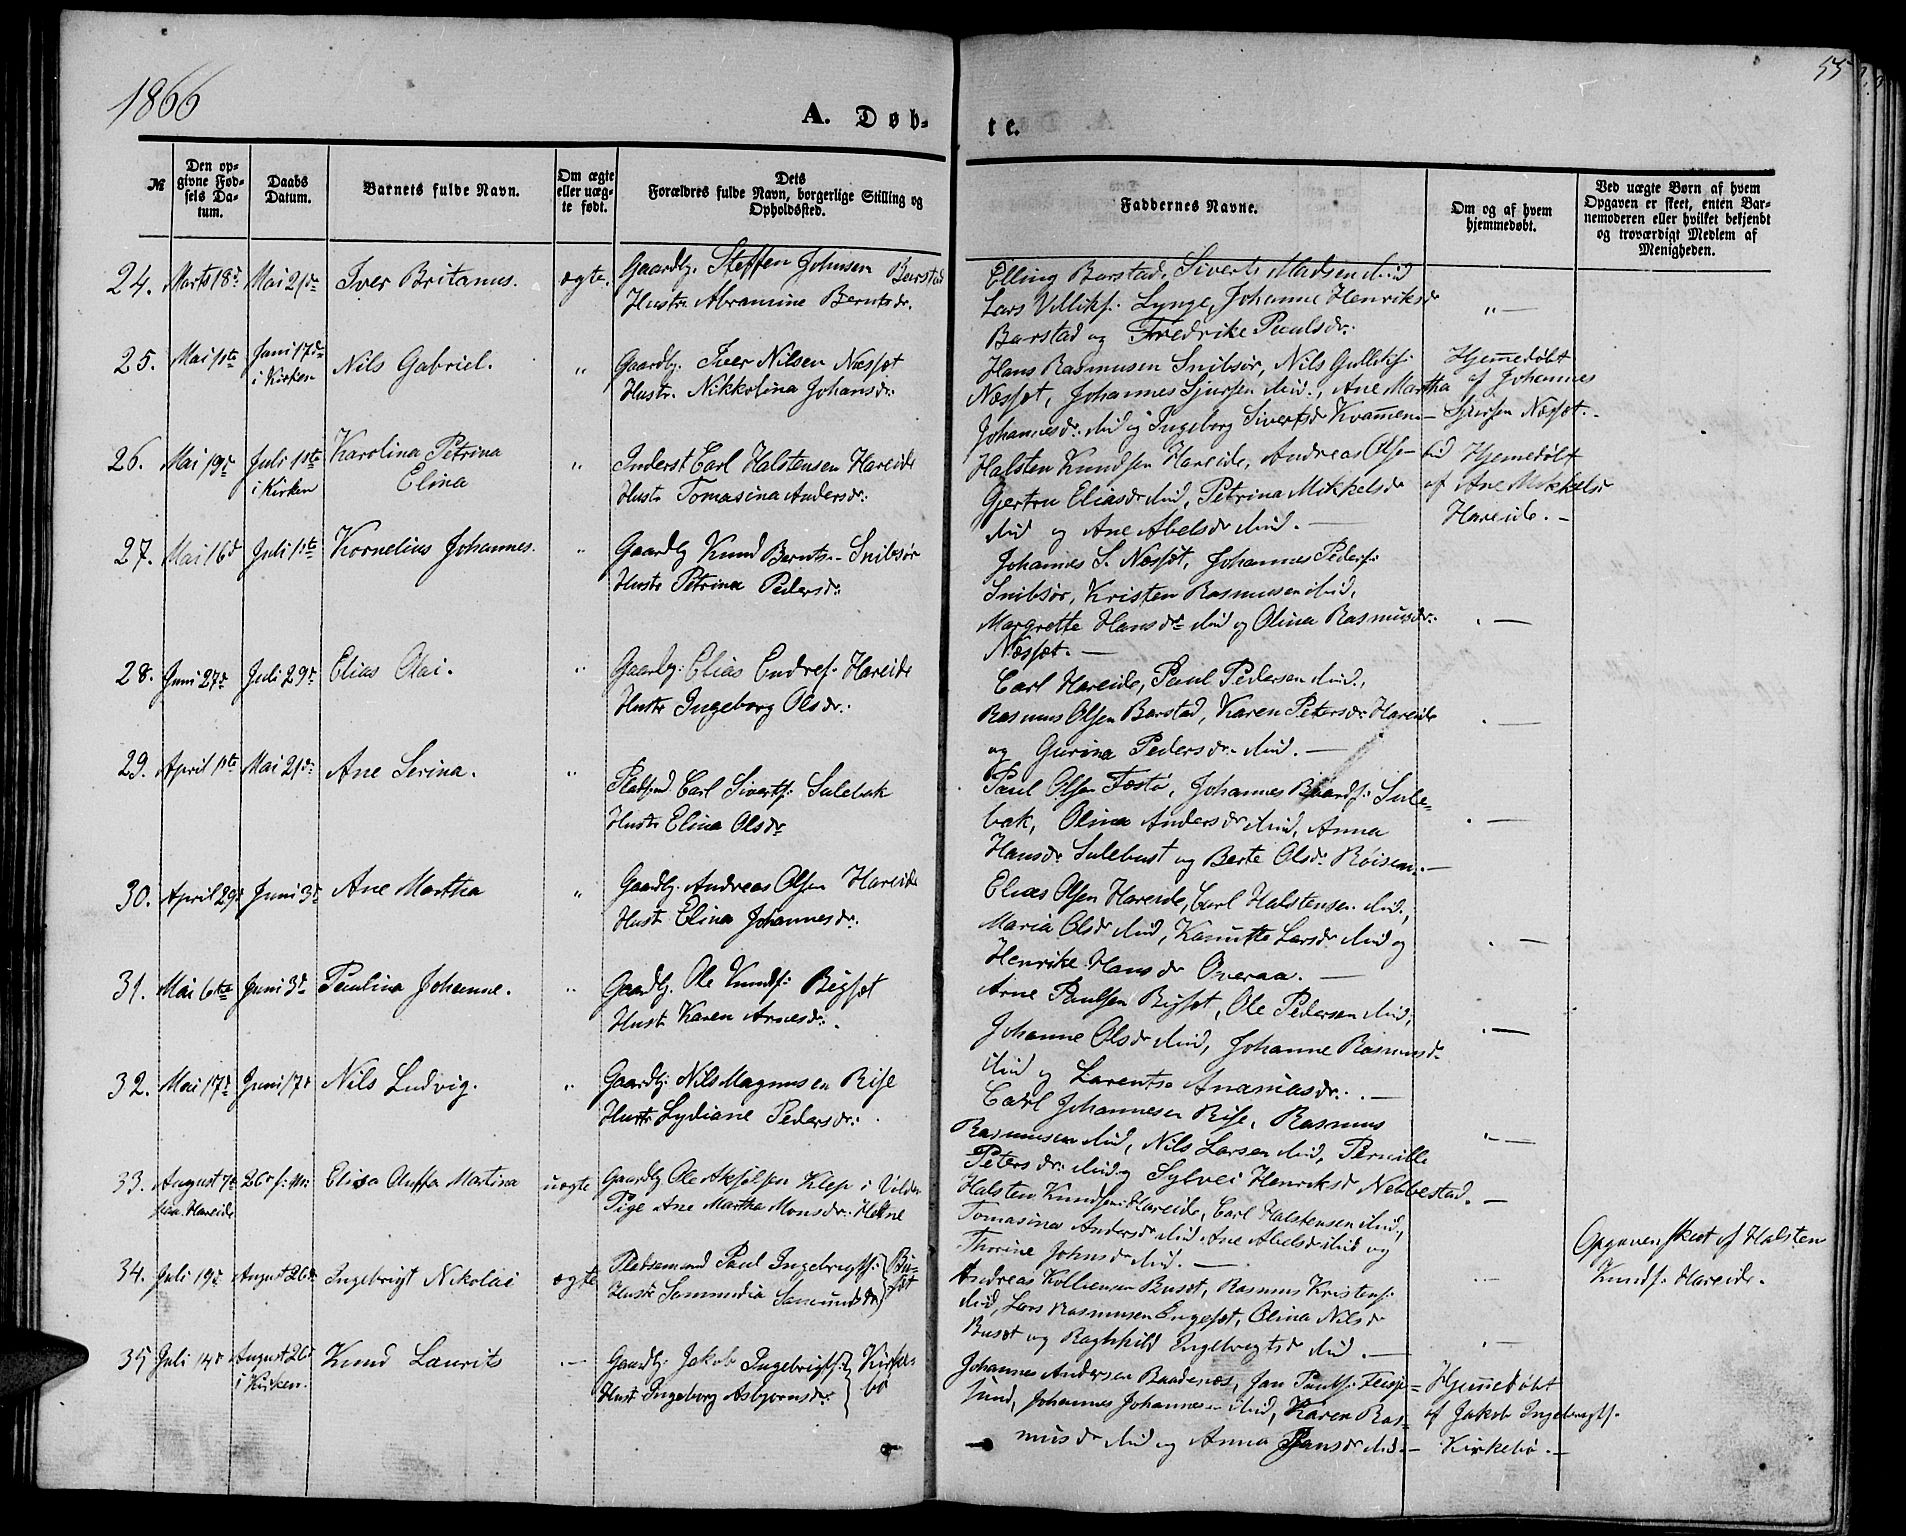 1866
55
A. Døb-
te.
№
Den op-
givne Fød-
sels Da-
tum.
Daabs
Datum.
Barnets fulde Navn.
Om ægte
eller uæg-
te født.
Dets
Forældres fulde Navn, borgerlige Stilling og
Opholdssted.
Faddernes Navne.
Om og af hvem
hjemmedøbt.
Ved uægte Børn af hvem
Opgaven er skeet, enten Bar-
nemoderen eller hvilket bekjendt
og troværdigt Medlem af
Menigheden.
24. Marts 18d Mai 21de Iver Britanus. ægte. Gaardbr. Steffen Johnsen Barstad
Hustr Abramine Berntsdr.
Elling Barstad, Sivert Madsen ibid
Lars Villiksf. Lynge, Johanne Henriksdr
Barstad og Fredrike Paulsdr. „ —
25. Mai 1ste Juni 17de i Kirken Nils Gabriel. „ Gaardbr. Iver Nilsen Næsset
Hustr. Nikkolina Johansdr.
Hans Rasmusen Snibsør, Nils Gullikf.
Næsset, Johannes Sjursen ibid., Ane Martha
Johannesdr. ibid og Ingeborg Sivertsdr Kvamen. —
Hjemedøbt
af Johannes
Sjursen Næsset. -
26. Mai 19d Juli 1ste i Kirken Karolina Petrina
Elina „ Inderst Carl Halstensen Hareide
Hustr Tomasina Andersdr.
Halsten Knudsen Hareide, Andreas Olse- ibid
Gjertru Eliasdr ibid, Petrina Mikkelsdr
ibid og Ane Abelsdr ibid. —
Hjemedøbt
af Ane Mikkelsdr
Hareide. -
27. Mai 16d Juli 1ste Kornelius Johannes. „ Gaardbr Knud Bernts- Snibsør
Hustr Petrina Pedersdr.
Johannes S. Næsset, Johannes Pedersf.
Snibsør, Kristen Rasmusen ibid,
Margrette Hansdr ibid og Olina Rasmusdr.
Næsset. — . —
28. Juni 27d Juli 29d Elias Olai. „ Gaardbr. Elias Endresf. Hareide
Hustr Ingeborg Olsdr.
Carl Hareide, Paul Pedersen ibid,
Rasmus Olsen Barstad, Karen Petersdr Hareide
og Gurina Pedersdr ibid. — . —
29. April 1ste Mai 21de Ane Serina. „ Pladsmd Carl Sivertsf. Sulebak
Hustr Elina Olsdr
Paul Olsen Tøstø, Johannes Baardsf. Sule-
bak, Olina Andersdr ibid, Anna
Hansdr Sulebust og Berte Olsdr. Røisen. — . —
30. April 29d Juni 3d Ane Martha „ Gaardbr. Andreas Olsen Hareide
Hustr Elina Johannesdr.
Elias Olsen Hareide, Carl Halstensen ibid,
Maria Olsdr ibid, Kanutte Larsdr ibid og
Henrike Hansdr Overaa. — . —
31. Mai 6te Juni 3d Paulina Johanne. „ Gaardbr. Ole Knudsf. Bigset
Hustr Karen Arnesdr.
Arne Paulsen Bigset, Ole Pedersen ibid,
Johanne Olsdr ibid, Johanne Rasmusdr
ibid og Larentse Ananiasdr. — . —
32. Mai 17d Juni 17d Nils Ludvig. „ Gaardbr. Nils Magnusen Rise
Hustr Lydiane Pedersdr.
Carl Johannesen Rise, Rasmus
Rasmusen ibid, Nils Larsen ibid, Pernille
Petersdr ibid og Sylvei Henriksdr Nebbestad. — „ —
33. August 7d paa Hareide 26d s: M: Elisa Oluffa Martina uægte Gaardbr Ole Akselsen Klep i Vilder
Pige Ane Martha Monsdr. Hæne
Halsten Knudsen Hareide, Carl Halstensen ibid,
Tomasina Andersdr ibid, Ane Abelsdr ibid og
Thorine Johnsdr ibid. —
Opgaven skeet af Halsten
Knudsf. Hareide.
34. Juli 19d August 26d Ingebrigt Nikolai ægte Pladsemand Paul Ingebrigtsf. } Bu-
Hustr Sammedia Samundsdr } set
Andreas Kolbensen Buset, Rasmus Kristensf.
ibid, Lars Rasmusen Engeset, Olina Nilsdr
Buset og Raghnild Ingebrigtsdr ibid. — . —
35 Juli 14d August 26d i Kirken. Knud Laurits — Gaardbr. Jakob Ingebrigtsf. } Kirke-
Hustr Ingeborg Asbjørnsdr. } bø
Johannes Andersen Baadenes, Jan Paulsf. Flusje-
sund, Johannes Johannesen ibid, Karen Ras-
musdr ibid og Anna Hansdr ibid. —
Hjemedøbt
af Jakob Ingebrigtsf.
Kirkebø. —